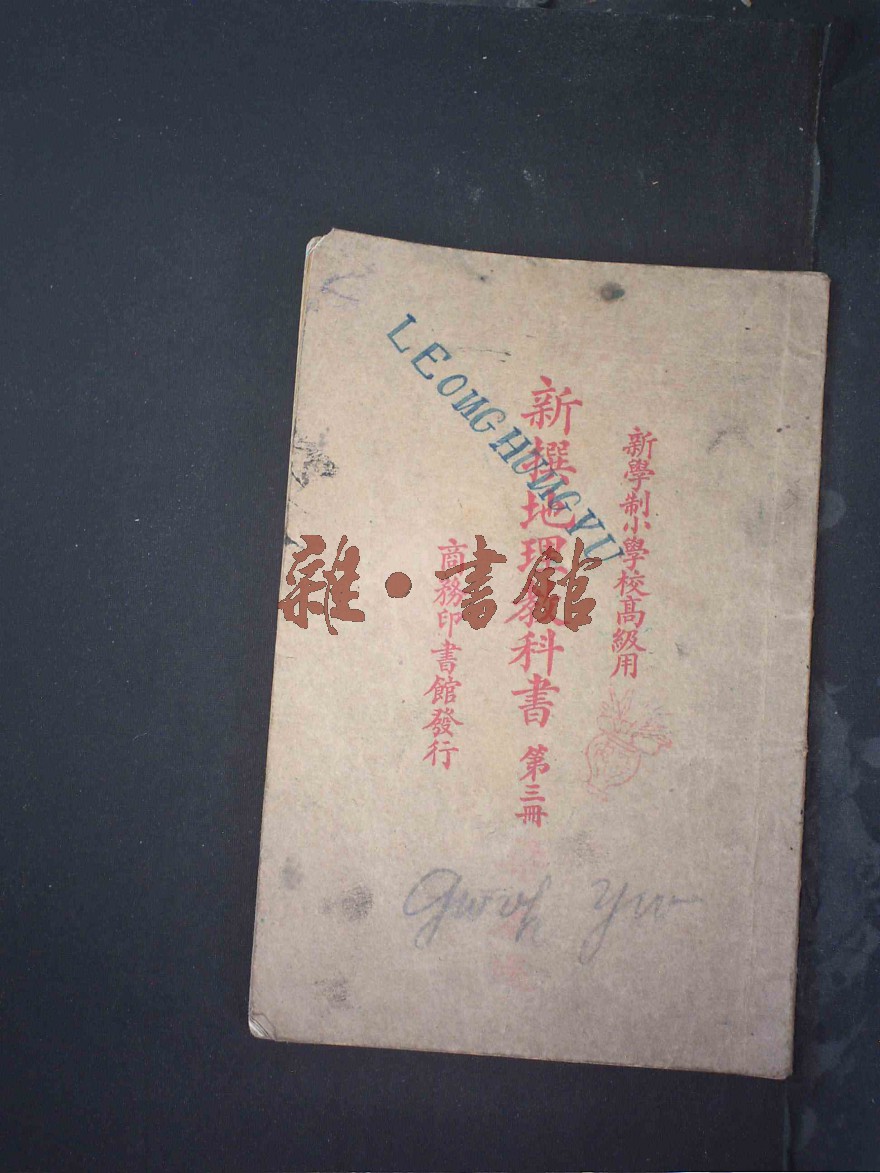 新學制小學校高級用
新撰地理教科書 第三冊
商務印書館發行
LEONGHUNGYU
雜·書館
Gwoh Yw